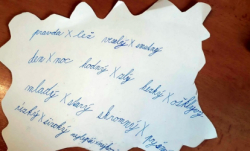 pravda X lež veselý X smutný
den X noc hodný X zlý hezký X ošklivý
mladý X starý skromný X
úzký X široký